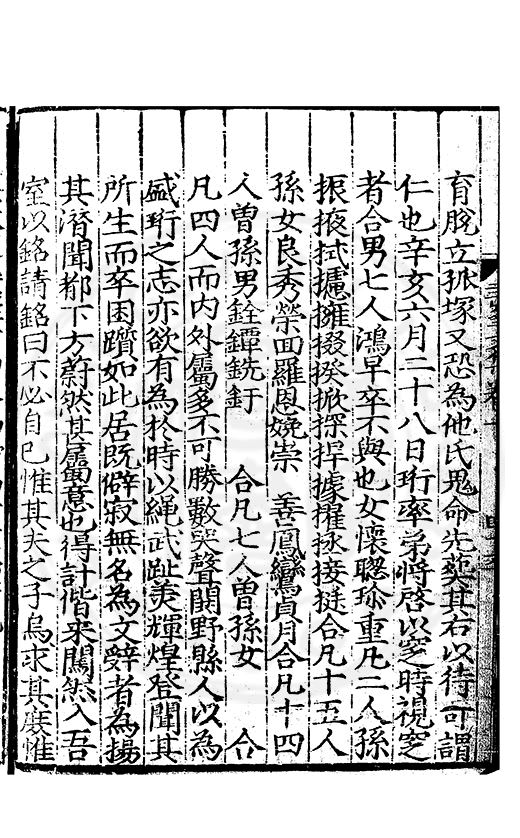 育脫立孤塚又恐為他氏鬼命先葬其右以待可謂
仁也辛亥六月二十八日珩率弟將啓以窆時視窆
者合男七人鴻早卒不與也女懷聰珎重凡二人孫
振掖拭攄擁掇揆掀探捍據擢拯接挺合凡十五人
孫女良秀榮回羅恩嬈崇 善鳳鸞貞月合凡十四
人曾孫男銓鐔銑釪 合凡七人曾孫女 合
凡四人而內外屬多不可勝數哭聲闐野縣人以為
盛珩之志亦欲有為於時以繩武趾羙輝煌登聞其
所生而卒困躓如此居旣僻寂無名為文辭者為揚
其潛聞都下方蔚然其屬意也得計偕来闖然入吾
室以銘請銘曰不必自巳惟其夫之子烏求其厥惟